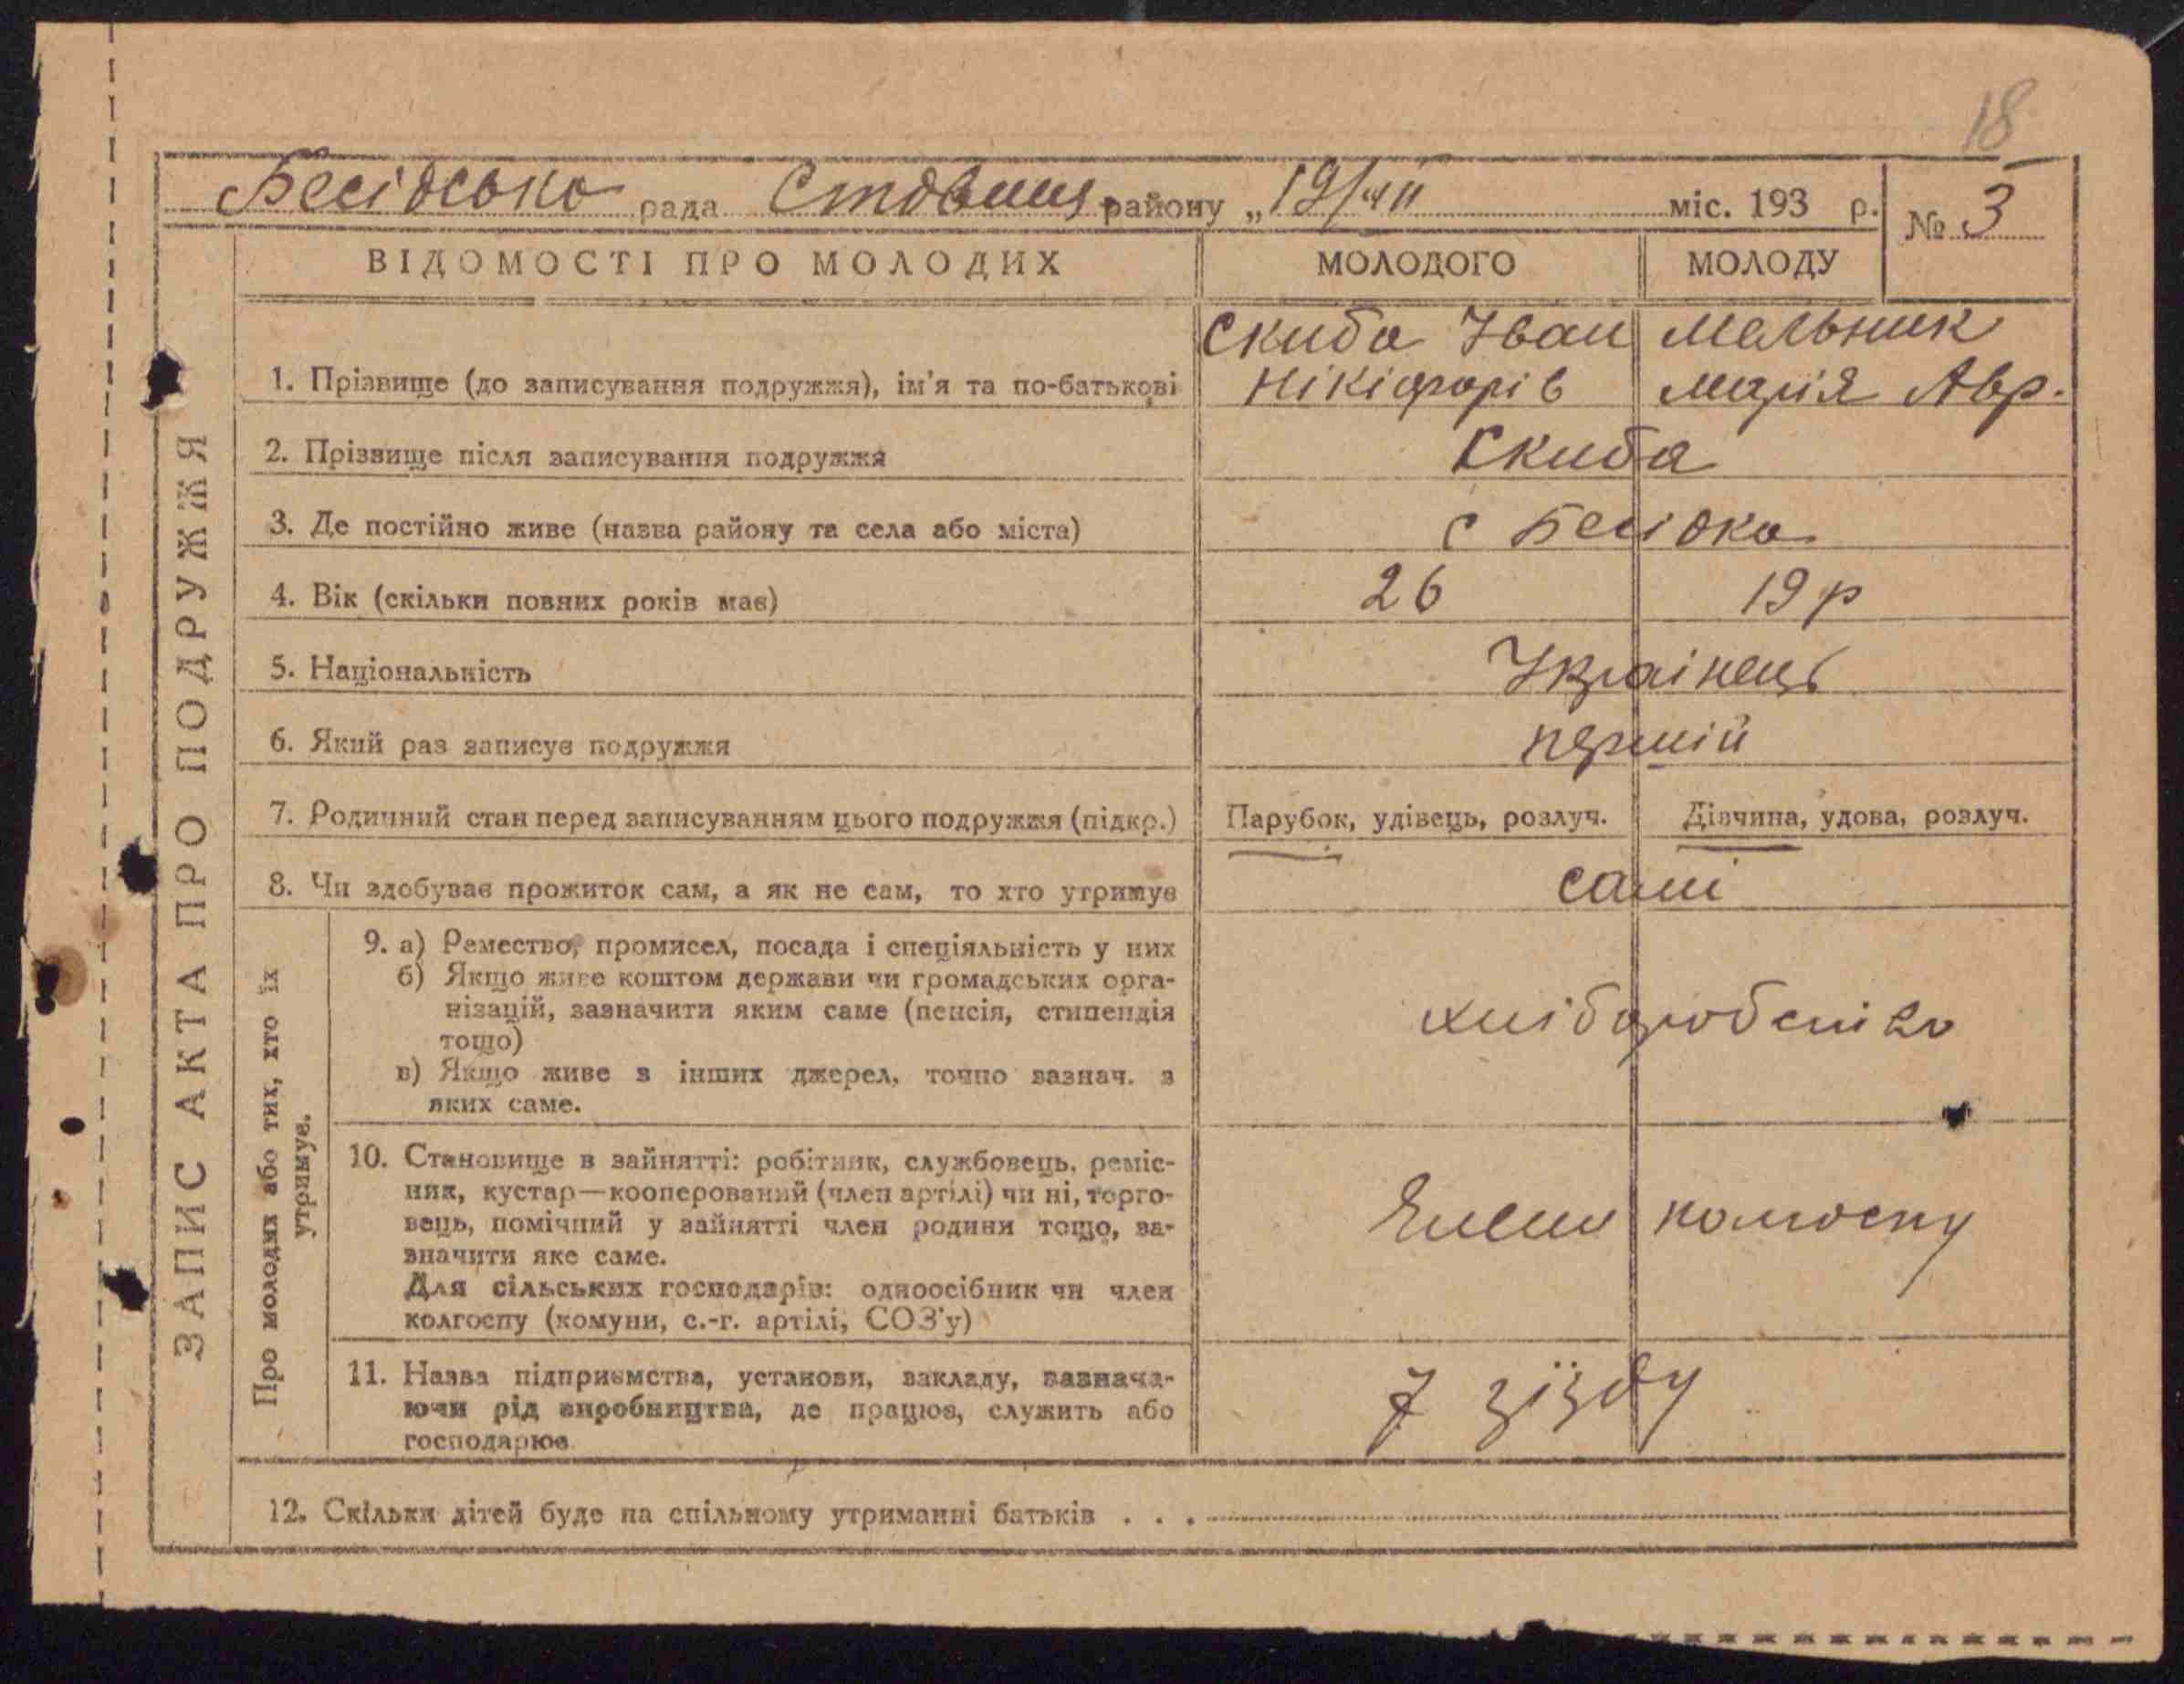 18
Бесідсько рада Ставищ. району „19/VII міс. 193 р. № 3
ВІДОМОСТІ ПРО МОЛОДИХ МОЛОДОГО МОЛОДУ
ЗАПИС АКТА ПРО ПОДРУЖЖЯ
Скиба Іван Мельник
1. Прізвище (до записування подружжя), ім'я та по-батькові Нікіфорів Марія Авр.
2. Прізвище після записування подружжя Скиба
3. Де постійно живе (назва району та села або міста) с Бесідка
4. Вік (скільки повних років має) 26 19 р
5. Національність Українець
6. Який раз записує подружжя першій
7. Родинний стан перед записуванням цього подружжя (підкр.) Парубок, удівець, розлуч. Дівчина, удова, розлуч.
8. Чи здобуває прожиток сам, а як не сам, то хто утримує самі
Про молодих або тих, хто їх
утримує.
9. а) Ремество, промисел, посада і спеціяльність у них
б) Якщо живе коштом держави чи громадських орга-
нізацій, зазначити яким саме (пенсія, стипендія
тощо)
в) Якщо живе з інших джерел, точно зазнач. з
яких саме.
хліборобство
10. Становище в зайнятті: робітник, службовець, реміс-
ник, кустар—кооперований (член артілі) чи ні, торго-
вець, помічний у зайнятті член родини тощо, за-
значити яке саме.
Для сільських господарів: одноосібник чи член
колгоспу (комуни, с.-г. артілі, СОЗ'у)
Член колгоспу
11. Назва підприємства, установи, закладу, зазнача-
ючи рід виробництва, де працює, служить або
господарює
7 зїзду
12. Скільки дітей буде на спільному утриманні батьків . . .